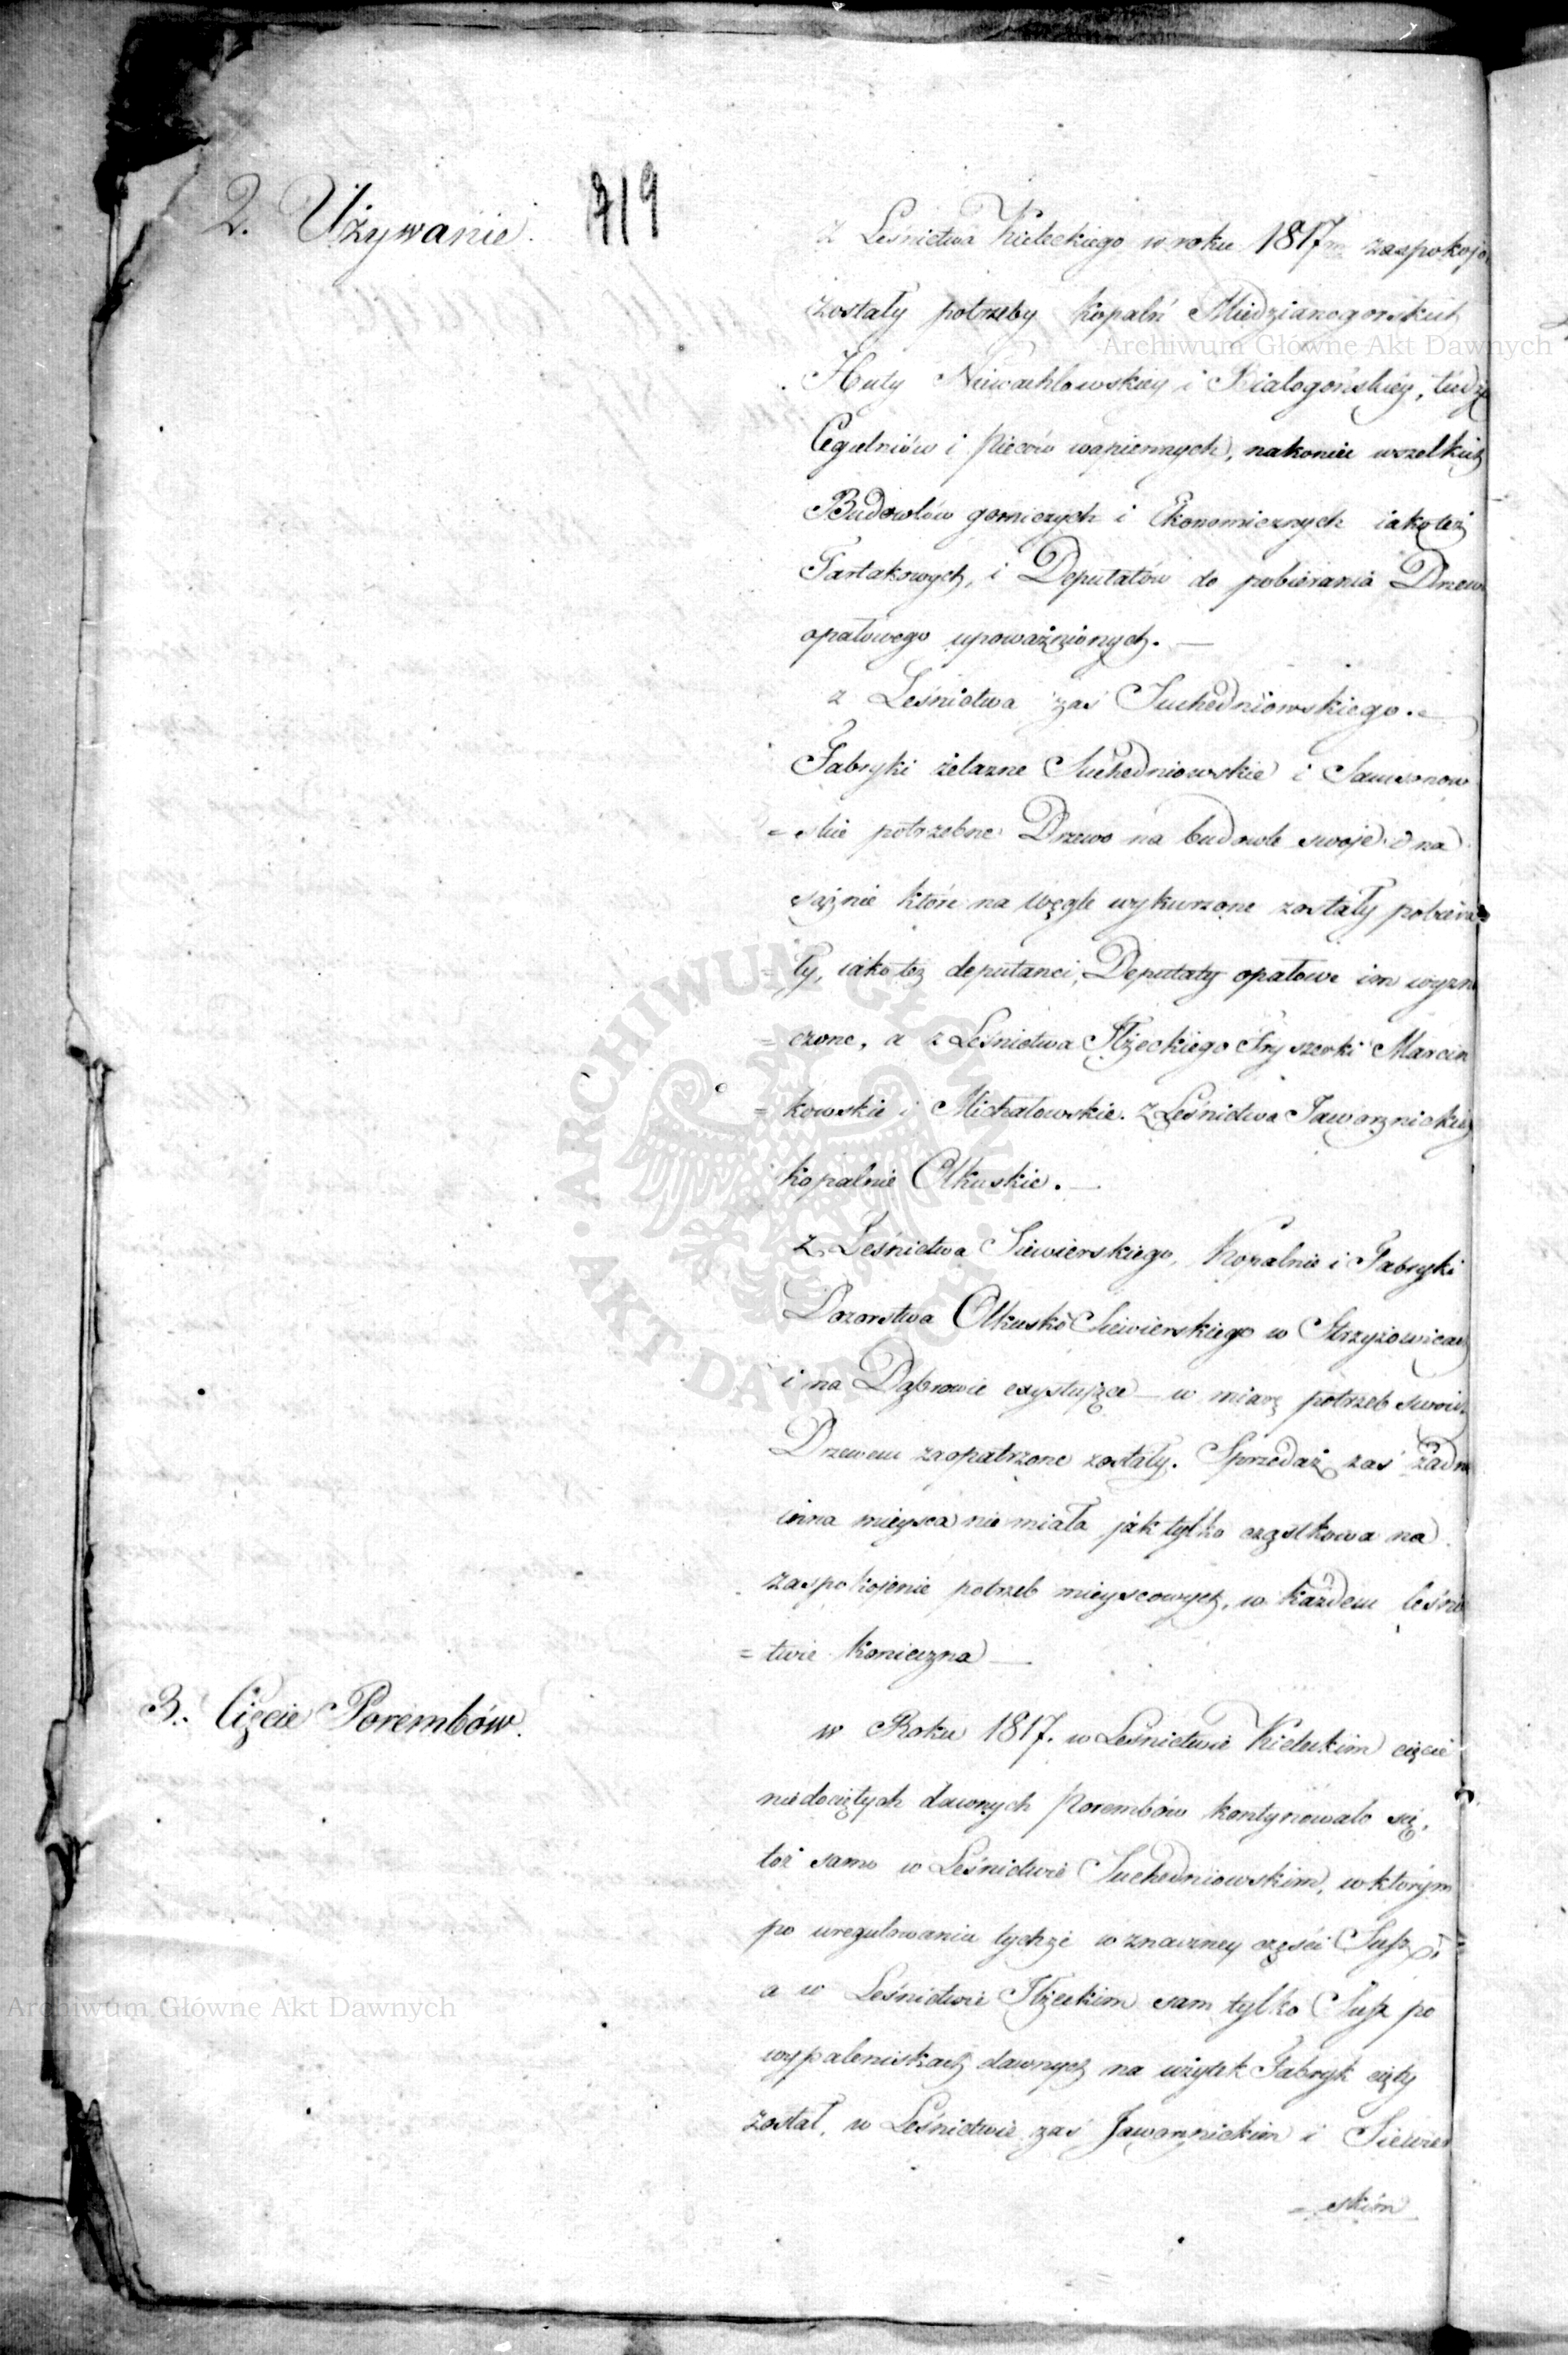 2. Używanie.
719
z Leśnictwa Kieleckiego w roku 1817m zaspokojo
zostały potrzeby Kopalń Miedzianogorskich
Huty Niewachlowskiey i Białogońskiey, tudz
Cegielniów i Pieców wapiennych, nakoniec wszelkich
Budowlów gorniczych i Ekonomicznych iako też
Tartakowych, i Deputatów do pobierania Drzew
opałowego upoważnionych. —
z Leśnictwa zaś Suchedniowskiego. —
Fabryki żelazne Suchedniowskie i Samsonow
= skie potrzebne Drzewo na budowle swoje i na
sążnie które na węgle wykurzone zostały pobiera
= ły, iako też deputanci, Deputaty opałowe im wyzna
= czone, a z Leśnictwa Iłżeckiego Fryszerki Marcin
= kowskie i Michałowskie. Z Leśnictwa Jaworznickieg
kopalnie Olkuskie. —
Z Leśnictwa Siewierskiego, Kopalnie i Fabryki
Dozorstwa Olkusko Siewierskiego w Strzyżowicach
i na Dąbrowie exystujące — w miarę potrzeb swoich
Drzewem zaopatrzone zostały. Sprzedaż zaś żadna
inna mieysca nie miała jak tylko cząstkowa na
zaspokojenie potrzeb mieyscowych, w każdem leśnic
= twie konieczna —
3. Cięcie Porembów.
w Roku 1817. w Leśnictwie Kieleckim cięcie
niedociętych dawnych Porembów kontynowało się,
toż samo w Leśnictwie Suchedniowskim, w którym
po uregulowaniu tychże w znaczney części Susz,
a w Leśnictwie Iłżeckim sam tylko Susz po
wypaleniskach dawnych na użytek Fabryk cięty
został, w Leśnictwie zaś Jaworznickim i Siewier
= skim
Archiwum Główne Akt Dawnych
ARCHIWUM GŁÓWNE AKT DAWNYCH
Archiwum Główne Akt Dawnych